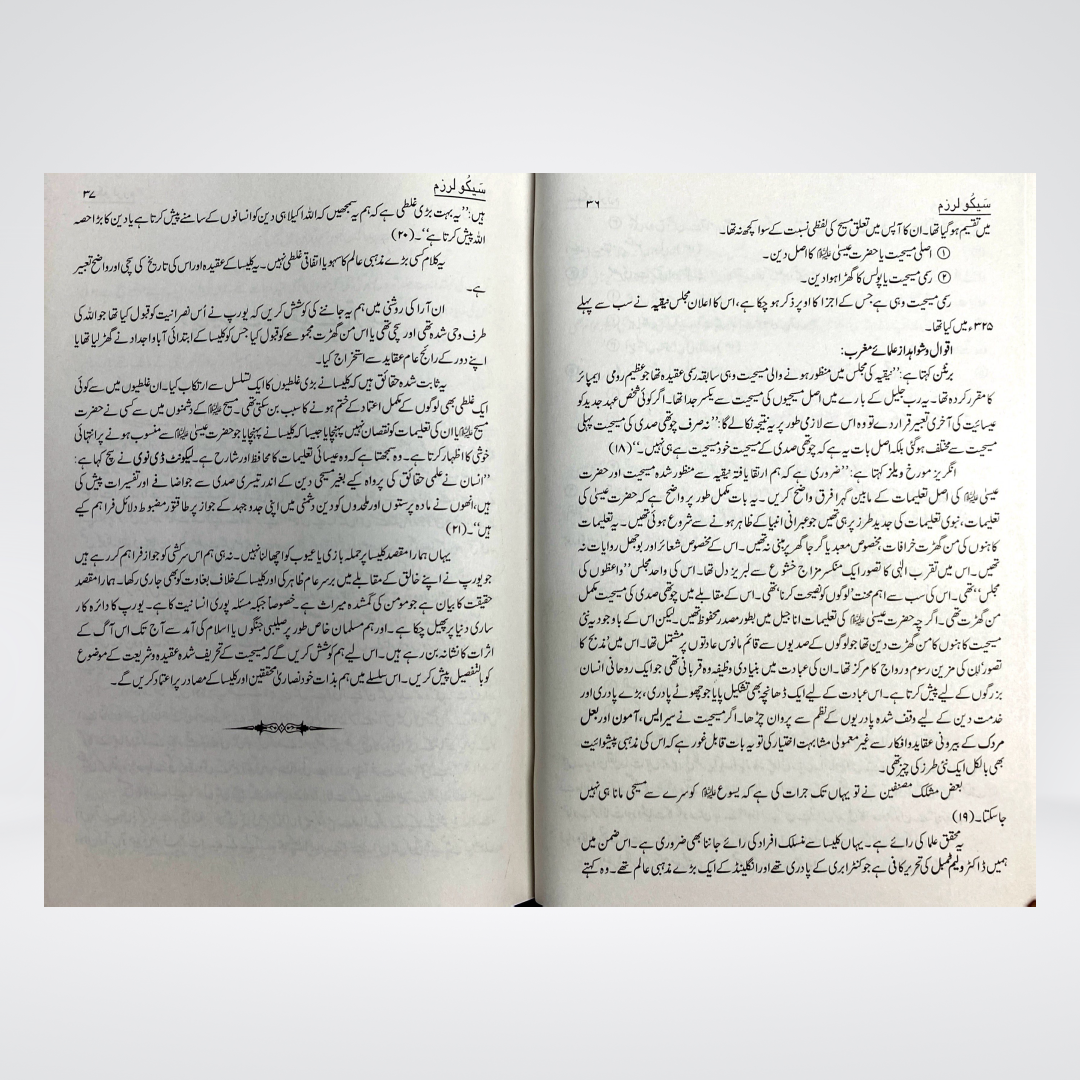 سیکولرزم
۳۶
میں تقسیم ہوگیا تھا۔ ان کا آپس میں تعلق مسیح کی لفظی نسبت کے سوا کچھ نہ تھا۔
① اصلی مسیحیت یا حضرت عیسیٰ علیہ السلام کا اصل دین۔
② رسمی مسیحیت یا پولس کا گھڑا ہوا دین۔
رسمی مسیحیت وہی ہے جس کے اجزا کا اوپر ذکر ہو چکا ہے، اس کا اعلان مجلس نیقیہ نے سب سے پہلے
۳۲۵ء میں کیا تھا۔
اقوال و شواہد از علمائے مغرب:
برنٹن کہتا ہے: ”نیقیہ کی مجلس میں منظور ہونے والی مسیحیت وہی سابقہ رسمی عقیدہ تھا جو عظیم رومی ایمپائر
کا مقرر کردہ تھا۔ یہ رب جلیل کے بارے میں اصل مسیحیوں کی مسیحیت سے یکسر جدا تھا۔ اگر کوئی شخص عہد جدید کو
عیسائیت کی آخری تعبیر قرار دے تو وہ اس سے لازمی طور پر یہ نتیجہ نکالے گا: ”نہ صرف چوتھی صدی کی مسیحیت پہلی
مسیحیت سے مختلف ہوگئی بلکہ اصل بات یہ ہے کہ چوتھی صدی کے مسیحیت خود مسیحیت ہے ہی نہیں۔“ (۱۸)
انگریز مورخ ویلز کہتا ہے: ”ضروری ہے کہ ہم ارتقا یافتہ نیقیہ سے منظور شدہ مسیحیت اور حضرت
عیسیٰ علیہ السلام کی اصل تعلیمات کے مابین گہرا فرق واضح کریں۔ یہ بات مکمل طور پر واضح ہے کہ حضرت عیسیٰ کی
تعلیمات، نبوی تعلیمات کی جدید طرز پر ہی تھیں جو عبرانی انبیا کے ظاہر ہونے سے شروع ہوئی تھیں۔ یہ تعلیمات
کاہنوں کی من گھڑت خرافات، مخصوص معبد یا گرجا گھر پر مبنی نہ تھیں۔ اس کے مخصوص شعائر اور بوجھل روایات نہ
تھیں۔ اس میں تقرب الٰہی کا تصور ایک منکسر مزاج خشوع سے لبریز دل تھا۔ اس کی واحد مجلس ”واعظوں کی
مجلس“ تھی۔ اس کی سب سے اہم محنت ’لوگوں کو نصیحت کرنا‘ تھی۔ اس کے مقابلے میں چوتھی صدی کی مسیحیت مکمل
من گھڑت تھی۔ اگرچہ حضرت عیسیٰ علیہ السلام کی تعلیمات اناجیل میں بطور مصدر محفوظ تھیں۔ لیکن اس کے باوجود یہ نئی
مسیحیت کاہنوں کا من گھڑت دین تھا جو لوگوں کے صدیوں سے قائم مانوس عادتوں پر مشتمل تھا۔ اس میں ’مذبح کا
تصور‘ ان کی مزین رسوم و رواج کا مرکز تھا۔ ان کی عبادت میں بنیادی وظیفہ وہ قربانی تھی جو ایک روحانی انسان
بزرگوں کے لیے پیش کرتا ہے۔ اس عبادت کے لیے ایک ڈھانچہ بھی تشکیل پایا جو چھوٹے پادری، بڑے پادری اور
خدمت دین کے لیے وقف شدہ پادریوں کے نظم سے پروان چڑھا۔ اگر مسیحیت نے سیراپس، آمون اور بعل
مردک کے بیرونی عقاید و افکار سے غیر معمولی مشابہت اختیار کی تو یہ بات قابل غور ہے کہ اس کی مذہبی پیشوائیت
بھی بالکل ایک نئی طرز کی چیز تھی۔
بعض متشکک مصنفین نے تو یہاں تک جرات کی ہے کہ یسوع علیہ السلام کو سرے سے مسیحی مانا ہی نہیں
جا سکتا۔ (۱۹)
یہ محقق علما کی رائے ہے۔ یہاں کلیسا سے منسلک افراد کی رائے جاننا بھی ضروری ہے۔ اس ضمن میں
ہمیں ڈاکٹر ولیم ٹمپل کی تحریر کافی ہے جو کنٹرابری کے پادری تھے اور انگلینڈ کے ایک بڑے مذہبی عالم تھے۔ وہ کہتے
سیکولرزم
۳۷
ہیں: ”یہ بہت بڑی غلطی ہے کہ ہم یہ سمجھیں کہ اللہ اکیلا ہی دین کو انسانوں کے سامنے پیش کرتا ہے یا دین کا بڑا حصہ
اللہ پیش کرتا ہے“۔ (۲۰)
یہ کلام کسی بڑے مذہبی عالم کا سہو یا اتفاقی غلطی نہیں۔ یہ کلیسا کے عقیدہ اور اس کی تاریخ کی سچی اور واضح تعبیر
ہے۔
ان آرا کی روشنی میں ہم یہ جاننے کی کوشش کریں کہ یورپ نے اُس نصرانیت کو قبول کیا تھا جو اللہ کی
طرف وحی شدہ تھی اور سچی تھی یا اس من گھڑت مجموعے کو قبول کیا جس کو کلیسا کے ابتدائی آباو اجداد نے گھڑ لیا تھا یا
اپنے دور کے رائج عام عقاید سے استخراج کیا۔
یہ ثابت شدہ حقائق ہیں کہ کلیسا نے بڑی غلطیوں کا ایک تسلسل سے ارتکاب کیا۔ ان غلطیوں میں سے کوئی
ایک غلطی بھی لوگوں کے مکمل اعتماد کے ختم ہونے کا سبب بن سکتی تھی۔ مسیح علیہ السلام کے دشمنوں میں سے کسی نے حضرت
مسیح علیہ السلام یا ان کی تعلیمات کو نقصان نہیں پہنچایا جیسا کہ کلیسا نے پہنچایا جو حضرت عیسیٰ علیہ السلام سے منسوب ہونے پر انتہائی
خوشی کا اظہار کرتا ہے۔ وہ سمجھتا ہے کہ وہ عیسائی تعلیمات کا محافظ اور شارح ہے۔ لیکونٹ ڈی نوی نے سچ کہا ہے:
”انسان نے علمی حقائق کی پرواہ کیے بغیر مسیحی دین کے اندر تیسری صدی سے جو اضافے اور تفسیرات پیش کی
ہیں، انھوں نے مادہ پرستوں اور ملحدوں کو دین دشمنی میں اپنی جدوجہد کے جواز پر طاقتور مضبوط دلائل فراہم کیے
ہیں“۔ (۲۱)
یہاں ہمارا مقصد کلیسا پر جملہ بازی یا عیوب کو اچھالنا نہیں۔ نہ ہی ہم اس سرکشی کو جواز فراہم کر رہے ہیں
جو یورپ نے اپنے خالق کے مقابلے میں برسرعام ظاہر کی اور کلیسا کے خلاف بغاوت کو بھی جاری رکھا۔ ہمارا مقصد
حقیقت کا بیان ہے جو مومن کی گمشدہ میراث ہے۔ خصوصاً جبکہ مسئلہ پوری انسانیت کا ہے۔ یورپ کا دائرہ کار
ساری دنیا پر پھیل چکا ہے۔ اور ہم مسلمان خاص طور پر صلیبی جنگوں یا اسلام کی آمد سے آج تک اس آگ کے
اثرات کا نشانہ بن رہے ہیں۔ اس لیے ہم کوشش کریں گے کہ مسیحیت کے تحریف شدہ عقیدہ و شریعت کے موضوع
کو بالتفصیل پیش کریں۔ اس سلسلے میں ہم بذات خود نصاریٰ محققین اور کلیسا کے مصادر پر اعتماد کریں گے۔